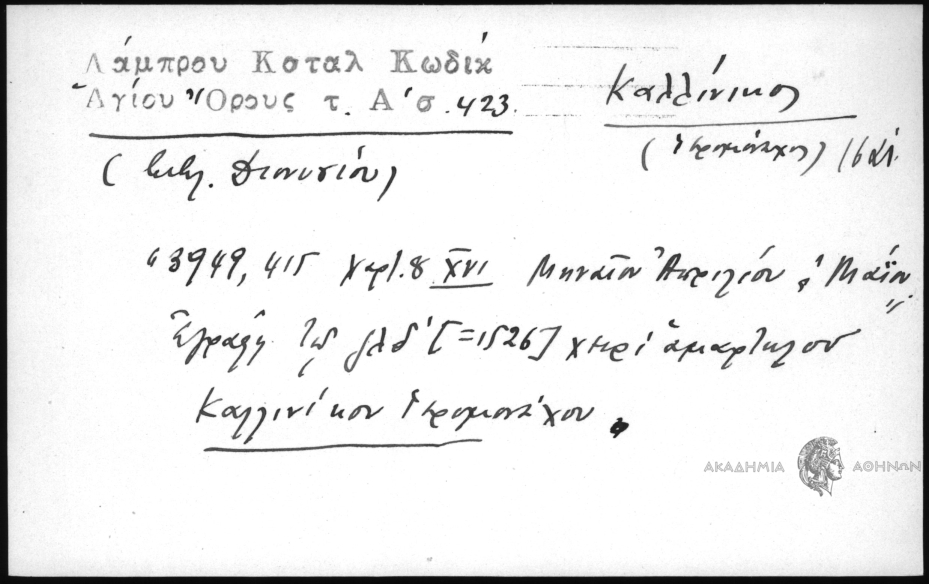 Λάμπρου Καταλ Κωδίκ
Ἁγίου Ὄρους τ. Α΄ σ. 423.
Καλλίνικος
(Ἱερομόναχος)
(βιβλ. Διονυσίου)
"3949, 415 χαρτ. 8 XVI Μηναῖον Ἀπριλίου, Μαΐου"
Ἐγράφη ͵ζλδ΄ [=1526] χειρὶ ἁμαρτωλοῦ
Καλλινίκου ἱερομονάχου.
ΑΚΑΔΗΜΙΑ ΑΘΗΝΩΝ